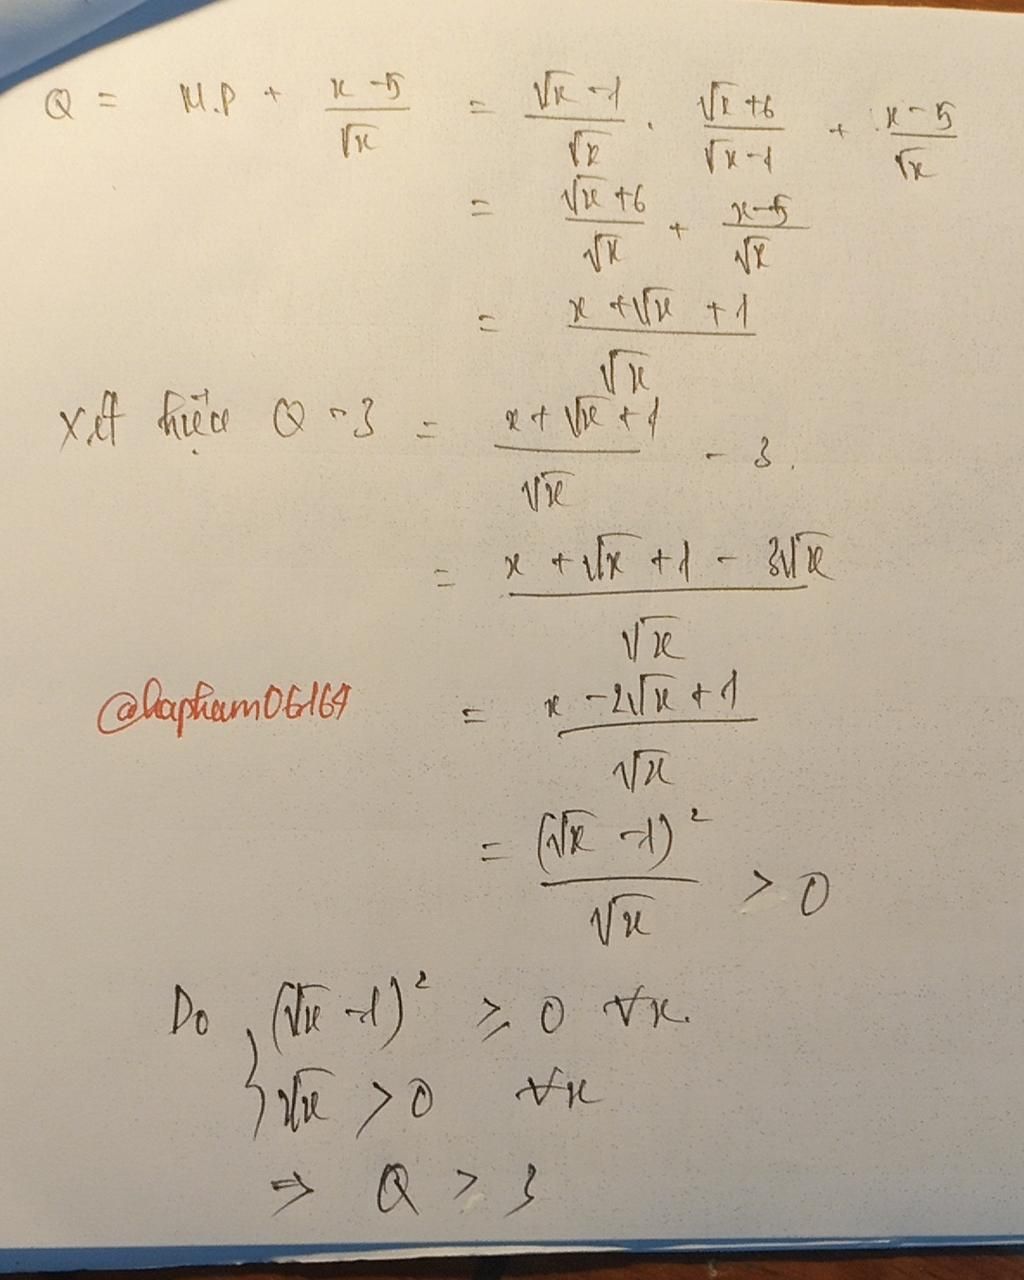 Q = M.P + \frac{x-5}{\sqrt{x}} = \frac{\sqrt{x}-1}{\sqrt{x}} . \frac{\sqrt{x}+6}{\sqrt{x}-1} + \frac{x-5}{\sqrt{x}}
= \frac{\sqrt{x}+6}{\sqrt{x}} + \frac{x-5}{\sqrt{x}}
= \frac{x+\sqrt{x}+1}{\sqrt{x}}
Xét hiệu Q - 3 = \frac{x+\sqrt{x}+1}{\sqrt{x}} - 3.
= \frac{x+\sqrt{x}+1-3\sqrt{x}}{\sqrt{x}}
@hapham06164 = \frac{x-2\sqrt{x}+1}{\sqrt{x}}
= \frac{(\sqrt{x}-1)^2}{\sqrt{x}} > 0
Do { (\sqrt{x}-1)^2 ≥ 0 ∀x.
\sqrt{x} > 0 ∀x
⇒ Q > 3